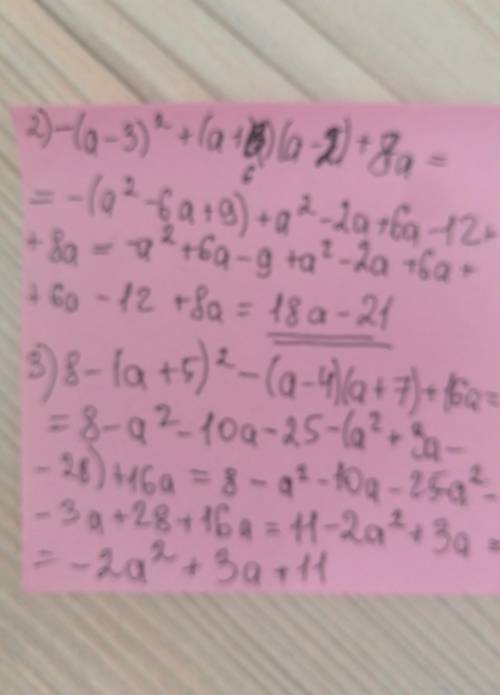 2) -(a-3)² + (a+6)(a-2) + 8a =
= -(a² - 6a + 9) + a² - 2a + 6a - 12 +
+ 8a = -a² + 6a - 9 + a² - 2a + 6a +
+ 6a - 12 + 8a = 18a - 21
3) 8 - (a+5)² - (a-4)(a+7) + 16a =
= 8 - a² - 10a - 25 - (a² + 3a -
- 28) + 16a = 8 - a² - 10a - 25a² -
- 3a + 28 + 16a = 11 - 2a² + 3a =
= -2a² + 3a + 11